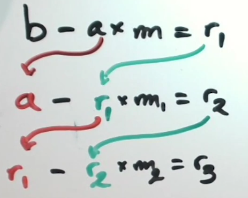 b - a × m = r₁
a - r₁ × m₁ = r₂
r₁ - r₂ × m₂ = r₃